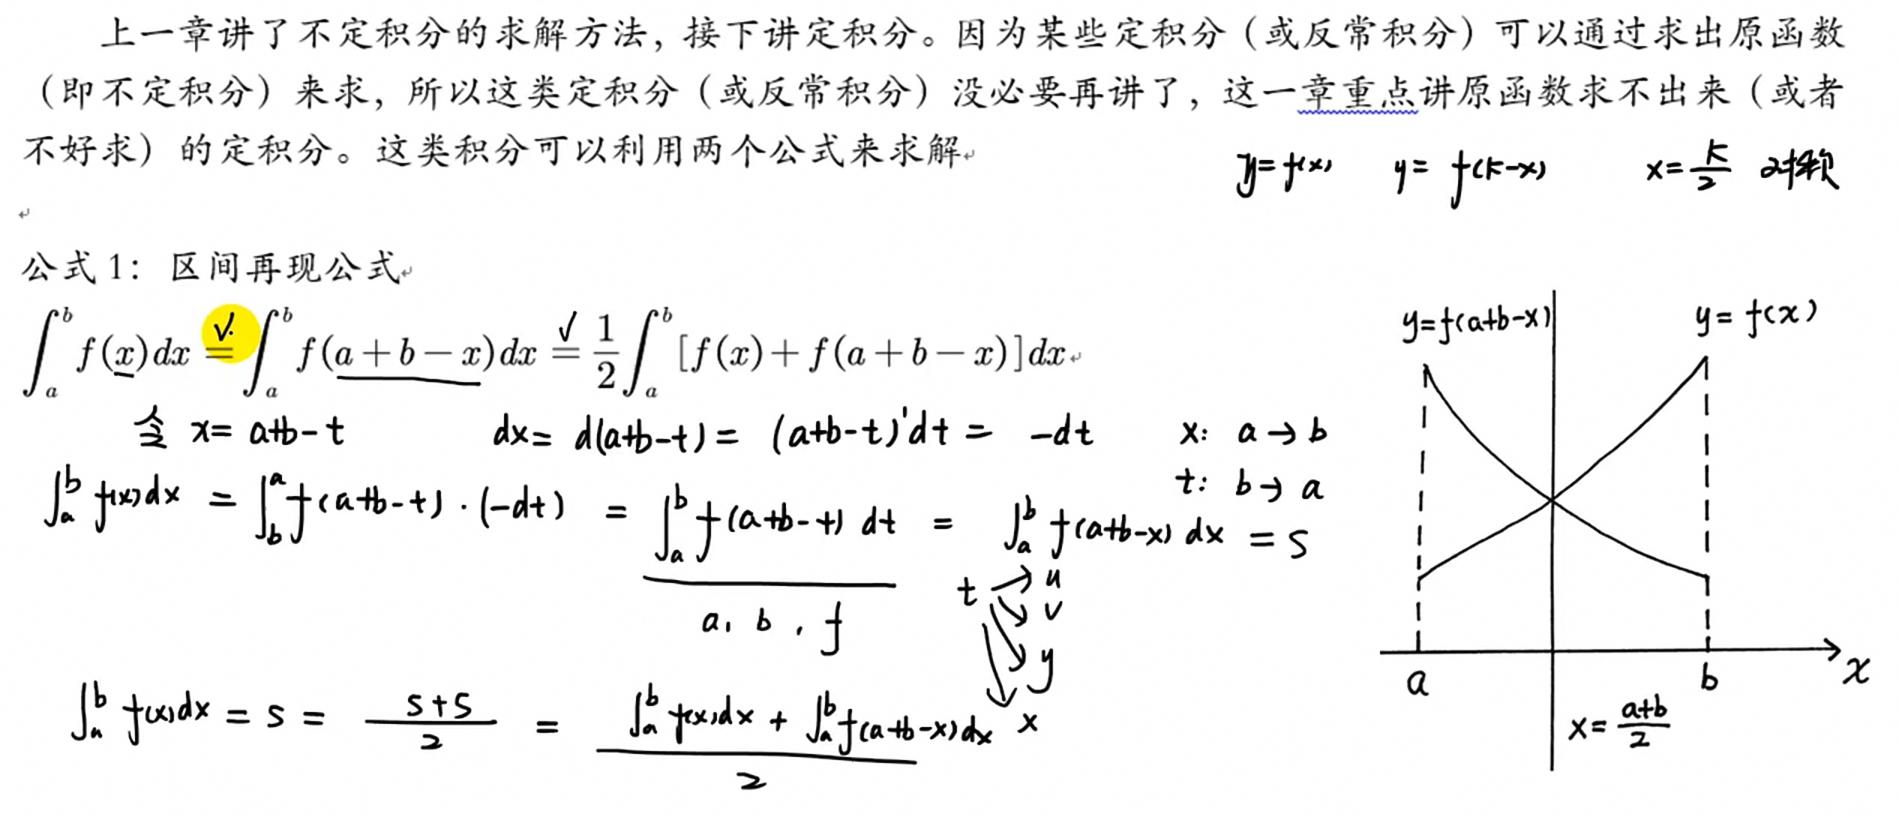 上一章讲了不定积分的求解方法，接下讲定积分。因为某些定积分（或反常积分）可以通过求出原函数
（即不定积分）来求，所以这类定积分（或反常积分）没必要再讲了，这一章重点讲原函数求不出来（或者
不好求）的定积分。这类积分可以利用两个公式来求解
y=f(x) y=f(k-x) x=k/2 对称
公式1：区间再现公式
∫_a^b f(x)dx = ∫_a^b f(a+b-x)dx = 1/2 ∫_a^b [f(x)+f(a+b-x)]dx
令 x=a+b-t dx=d(a+b-t)=(a+b-t)'dt=-dt x: a→b
t: b→a
∫_a^b f(x)dx = ∫_b^a f(a+b-t)·(-dt) = ∫_a^b f(a+b-t)dt = ∫_a^b f(a+b-x)dx = S
a, b, f
t → u
v
y
x
∫_a^b f(x)dx = S = (S+S)/2 = (∫_a^b f(x)dx + ∫_a^b f(a+b-x)dx)/2
y=f(a+b-x) y=f(x)
a b x
x=(a+b)/2